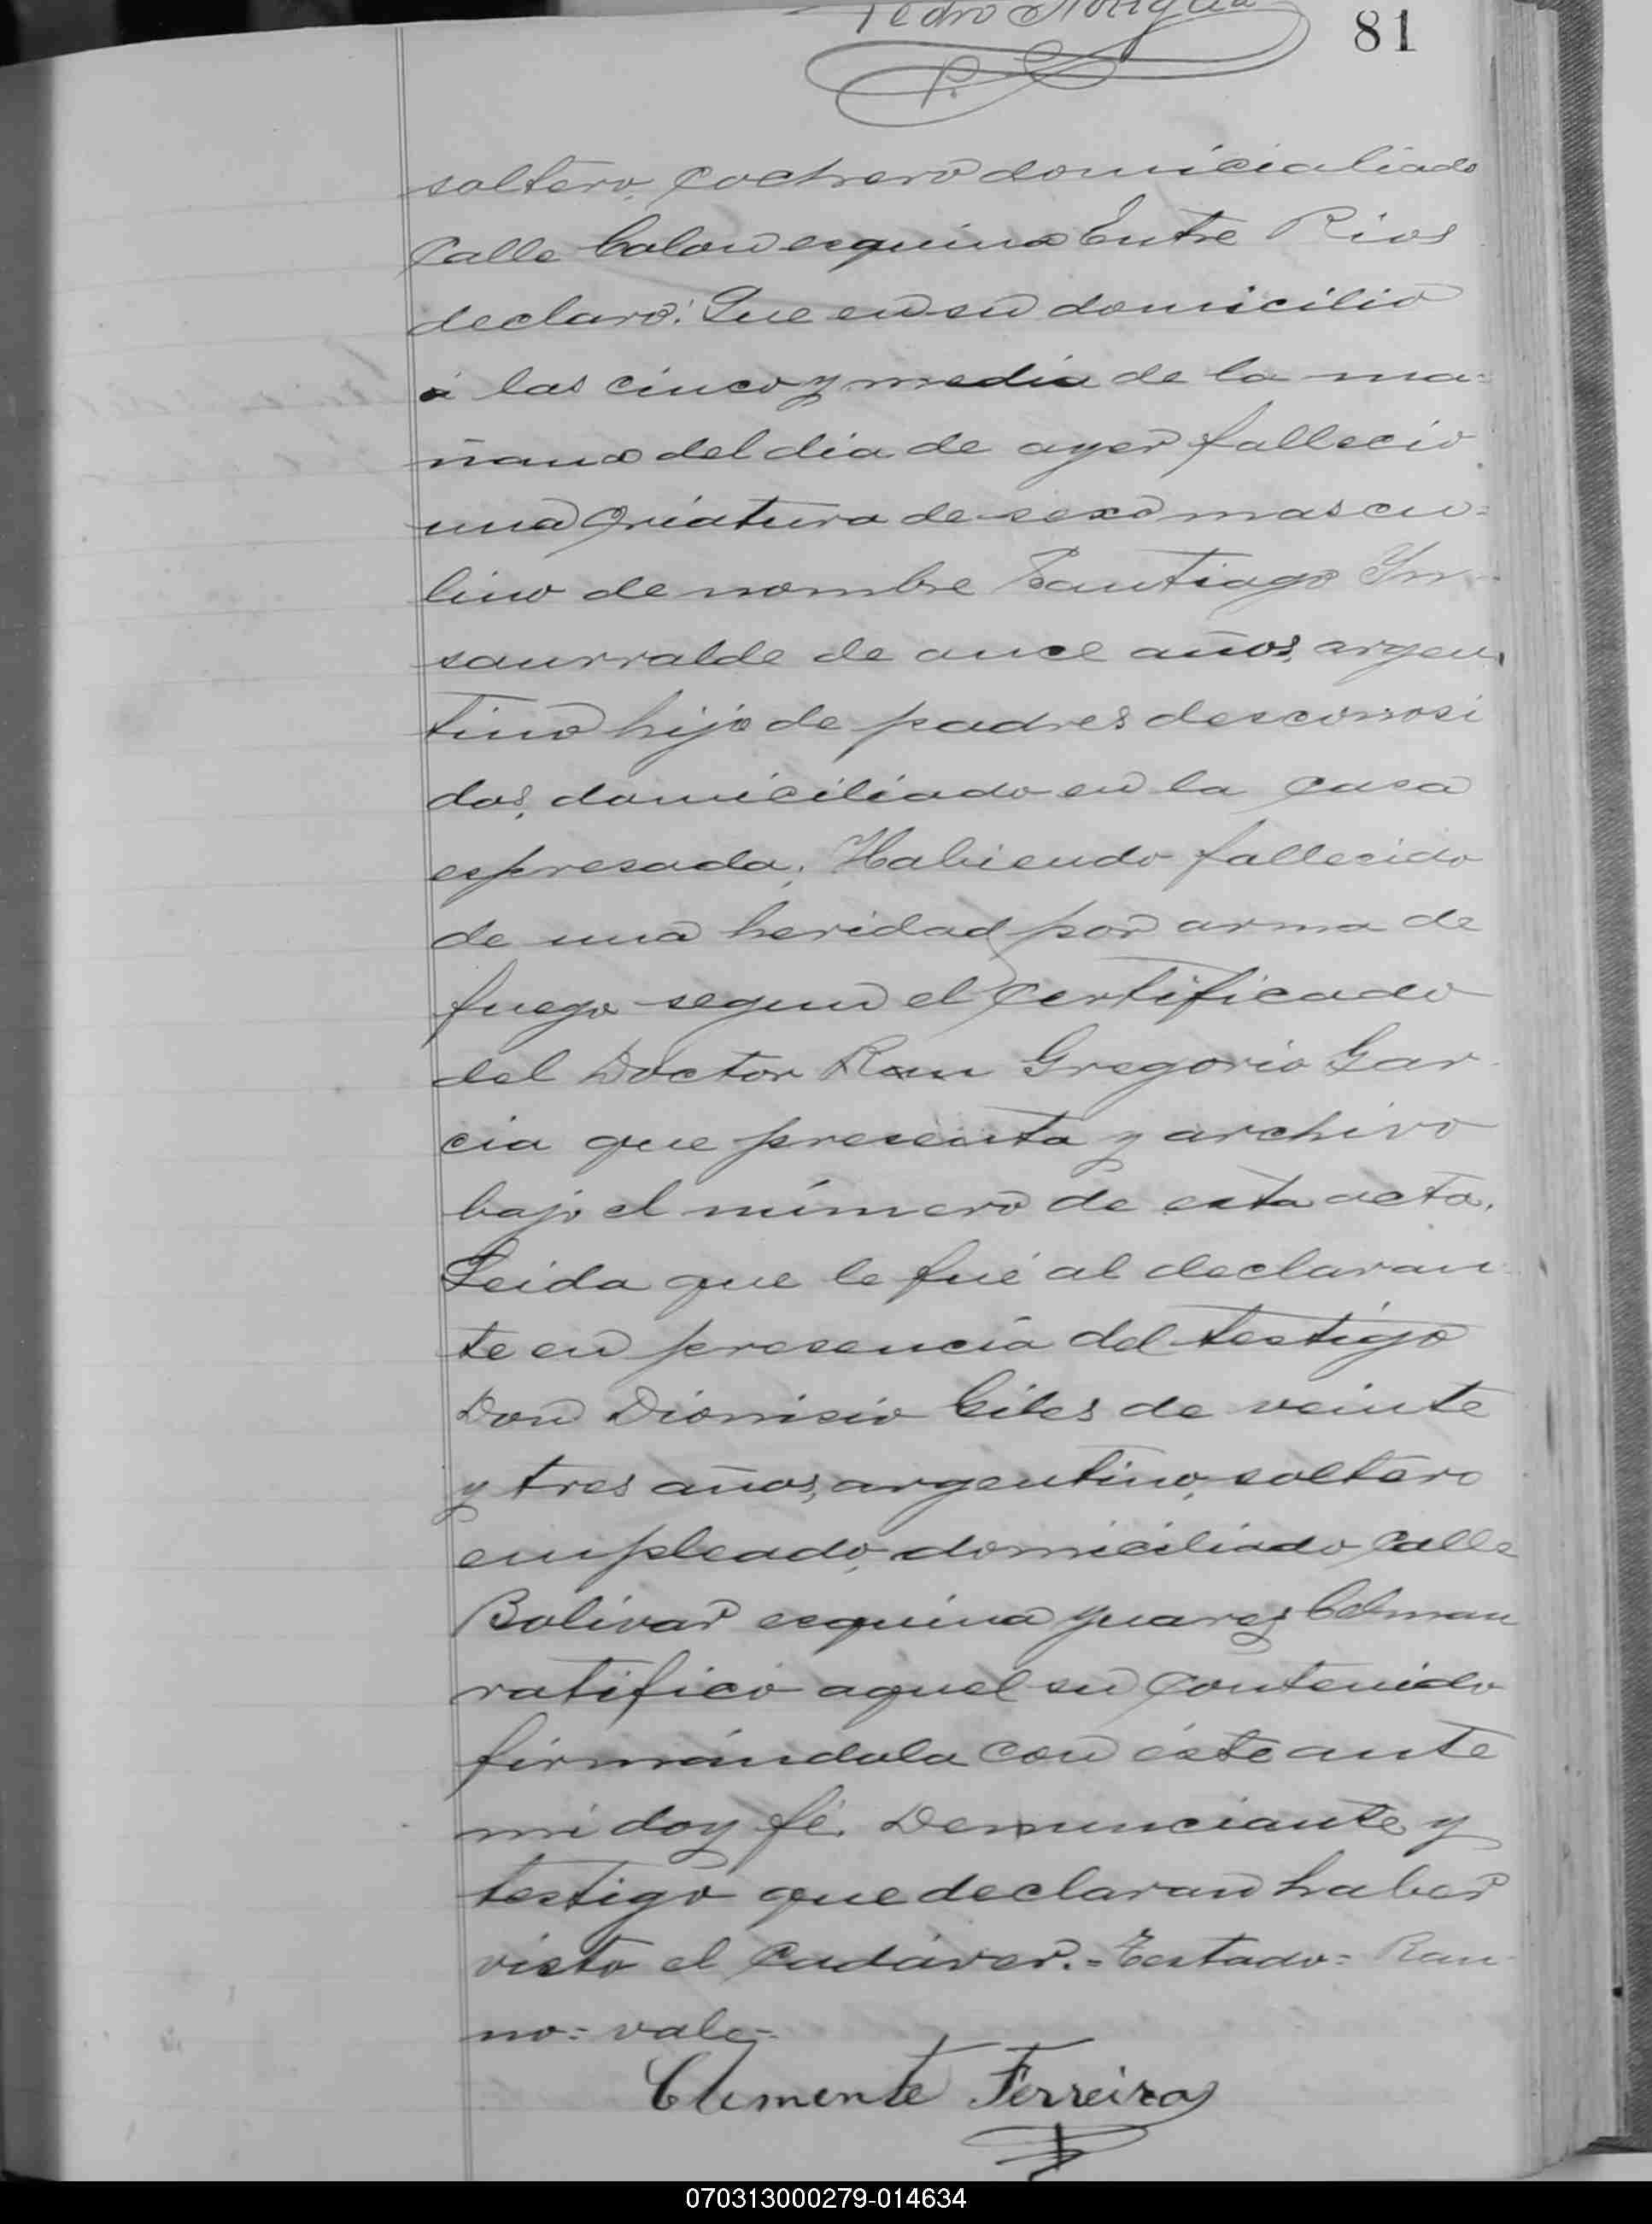 Pedro
81
soltero, cochero domicialiado
calle Colon esquina Entre Rios
declaró: Que en su domicilio
á las cinco y media de la ma=
ñana del dia de ayer fallecio
una criatura de sexo mascu=
lino de nombre Santiago Yn-
saurralde de once años, argen
tino hijo de padres desconosi
dos, domiciliado en la casa
espresada; Habiendo fallecido
de una heridad por arma de
fuego segun el certificado
del Doctor Ran Gregorio Gar
cia que presenta y archivo
bajo el número de esta acta.
Leida que le fué al declaran
te en presencia del testigo
Don Dionisio Ciles de veinte
y tres años, argentino, soltero
empleado, domiciliado calle
Bolivar esquina Juarez Celman
ratificó aquel su contenido
firmándola con éste ante
mi doy fé. Denunciante y
testigo que declaran haber
visto el cadáver.=Testado= Ran
no= vale=
Clemente Ferreira
070313000279-014634